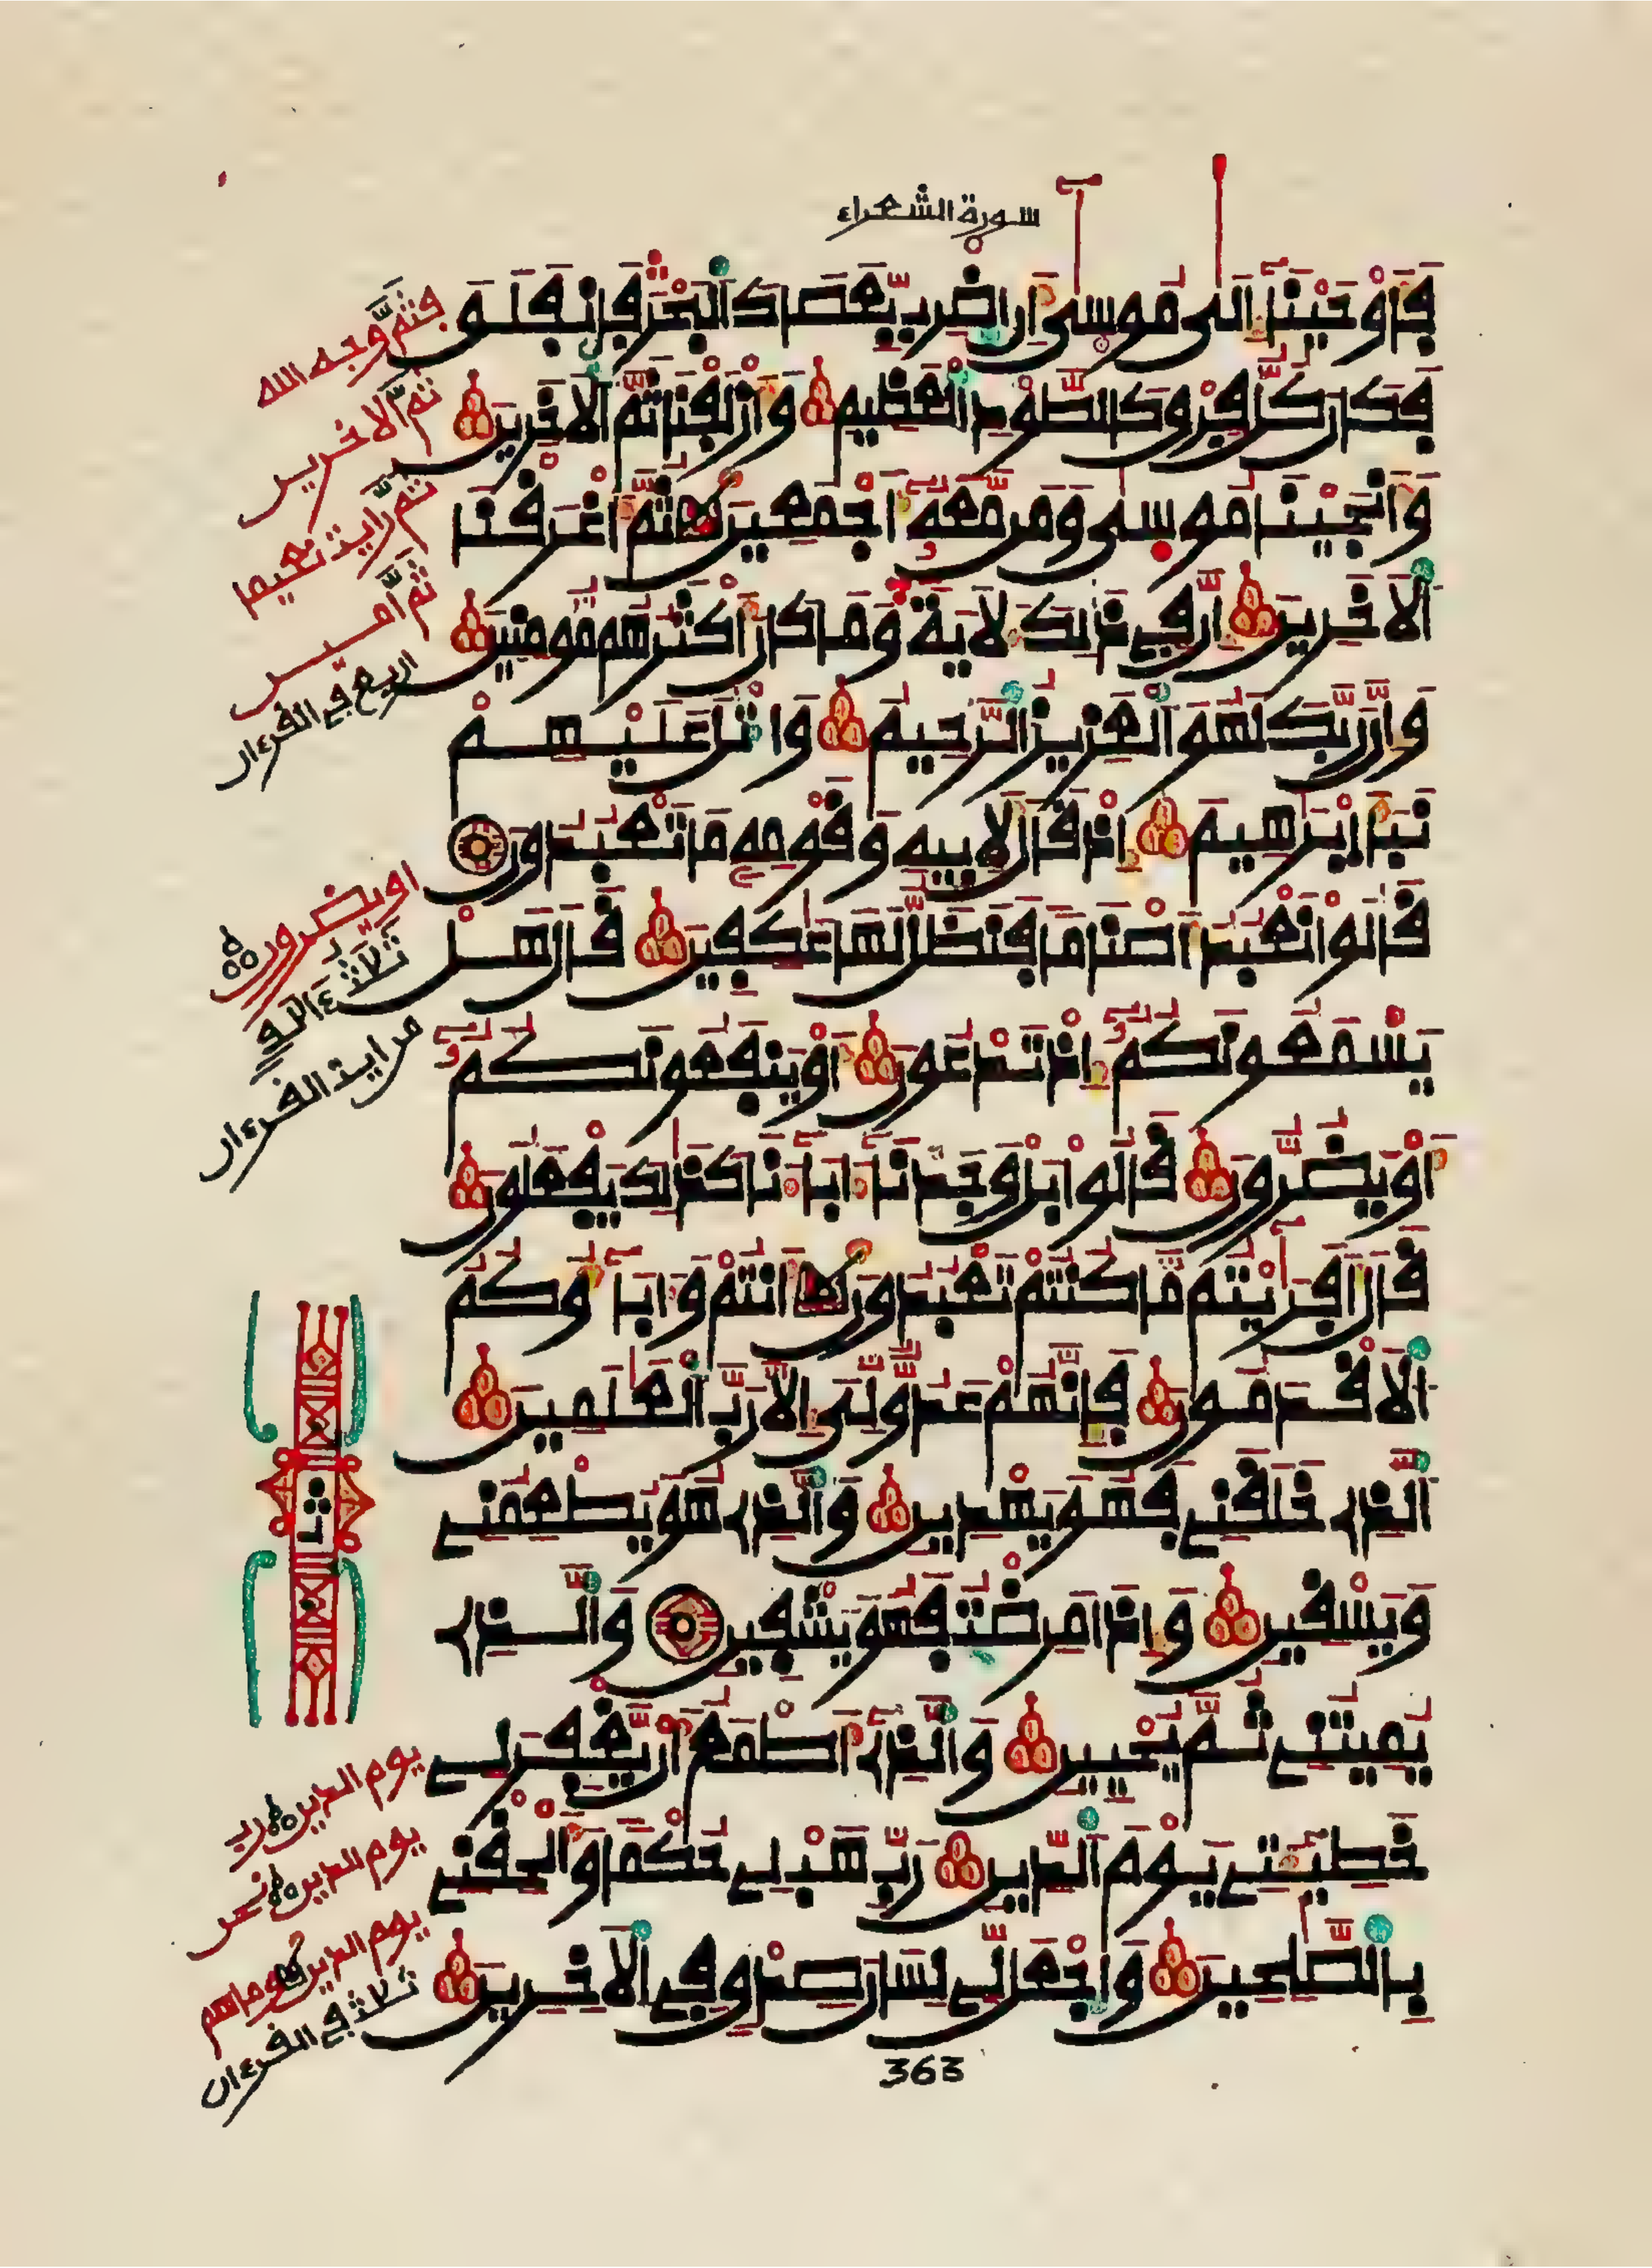 سورة الشعراء
فَأَوْحَيْنَآ إِلَىٰ مُوسَىٰٓ أَنِ اِضْرِب بِّعَصَاكَ اَ۬لْبَحْرَ فَانفَلَقَ
فَكَانَ كُلُّ فِرْقٍ كَالطَّوْدِ اِ۬لْعَظِيمِ وَأَزْلَفْنَا ثَمَّ اَ۬لَاخَرِينَ
وَأَنجَيْنَا مُوسَىٰ وَمَن مَّعَهُۥٓ أَجْمَعِينَ ثُمَّ أَغْرَقْنَا
اَ۬لَاخَرِينَ إِنَّ فِي ذَٰلِكَ لَأيَةً وَمَا كَانَ أَكْثَرُهُم مُّومِنِينَ
وَإِنَّ رَبَّكَ لَهُوَ اَ۬لْعَزِيزُ اُ۬لرَّحِيمُ وَاتْلُ عَلَيْهِمْ
نَبَأَ اِبْرَٰهِيمَ إِذْ قَالَ لِأَبِيهِ وَقَوْمِهِۦ مَا تَعْبُدُونَ
قَالُواْ نَعْبُدُ أَصْنَاماً فَنَظَلُّ لَهَا عَٰكِفِينَ قَالَ هَلْ
يَسْمَعُونَكُمُۥٓ إِذْ تَدْعُونَ أَوْ يَنفَعُونَكُمُۥٓ
أَوْ يَضُرُّونَ قَالُواْ بَلْ وَجَدْنَآ ءَابَآءَنَا كَذَٰلِكَ يَفْعَلُونَ
قَالَ أَفَرَٰٓيْتُم مَّا كُنتُمْ تَعْبُدُونَ أَنتُمْ وَءَابَآؤُكُمُ
اُ۬لَاقْدَمُونَ فَإِنَّهُمْ عَدُوٌّ لِّيَ إِلَّا رَبَّ اَ۬لْعَٰلَمِينَ
اَ۬لذِے خَلَقَنِے فَهُوَ يَهْدِينِ وَالذِے هُوَ يُطْعِمُنِے
وَيَسْقِينِ وَإِذَا مَرِضْتُ فَهُوَ يَشْفِينِ وَالذِے
يُمِيتُنِے ثُمَّ يُحْيِينِ وَالذِےٓ أَطْمَعُ أَنْ يَّغْفِرَ لِے
خَطِيٓـَٔتِے يَوْمَ اَ۬لدِّينِ رَبِّ هَبْ لِے حُكْماً وَأَلْحِقْنِے
بِالصَّٰلِحِينَ وَاجْعَل لِّے لِسَانَ صِدْقٍ فِي اِ۬لَاخِرِينَ
363
فثم وجه الله
ثم الاخرين
ثم رايت نعيما
ثم امين
اربع في القرءان
او يضرون
ثلثة ءالف
من اية القرءان
ثمن
يوم الدين رب
يوم الدين نحن
يوم الدين وما هم
ثلاث في القرءان